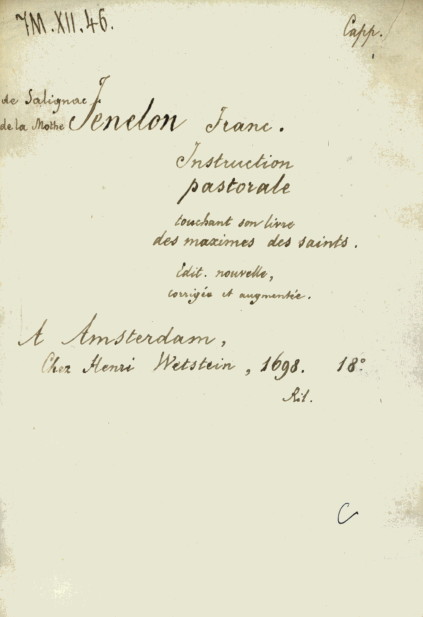 7M.XII.46. Capp.
de Salignac
de la Mothe Fenelon Franc.
Instruction
pastorale
touchant son livre
des maximes des saints.
Edit. nouvelle,
corrigée et augmentée.
A Amsterdam,
Chez Henri Wetstein, 1698. 18°
Ril.
C